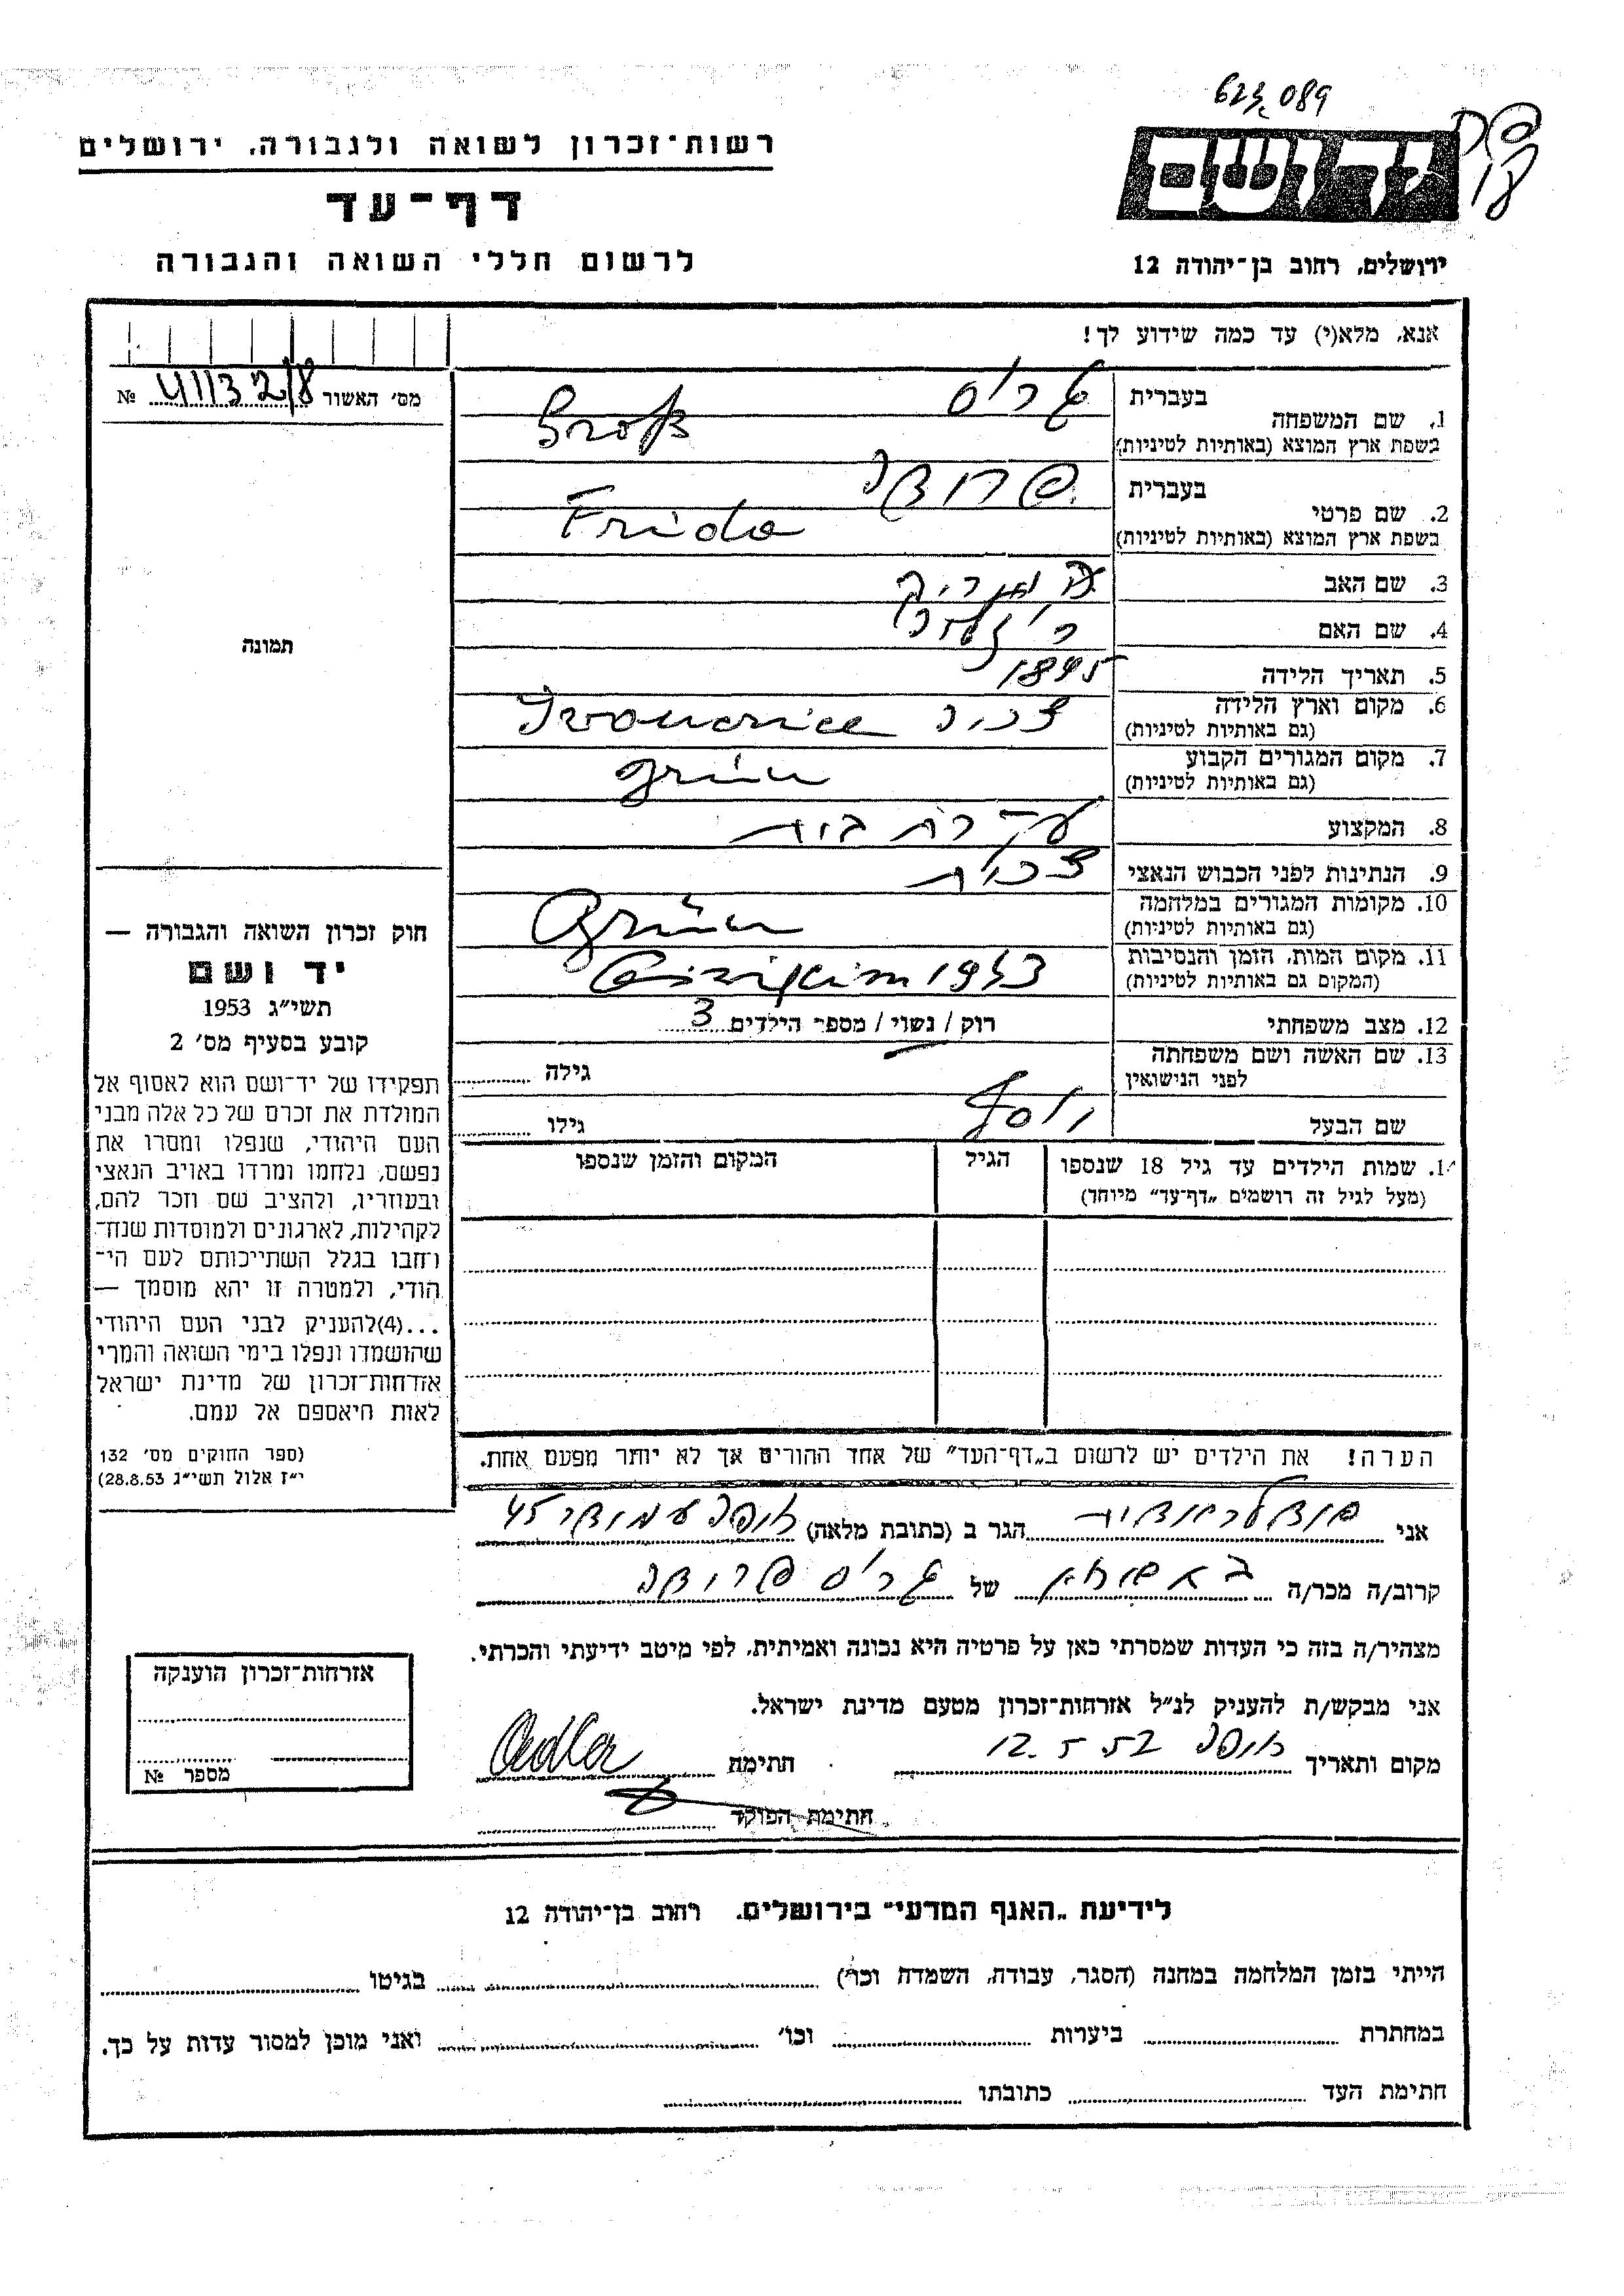 623,089
רשות־זכרון לשואה ולגבורה, ירושלים
דף־עד
לרשום חללי השואה והגבורה
יד ושם
ירושלים, רחוב בן־יהודה 12
אנא, מלא(י) עד כמה שידוע לך!
מס׳ האשור 41132/8 №
תמונה
חוק זכרון השואה והגבורה —
יד ושם
תשי״ג 1953
קובע בסעיף מס׳ 2
תפקידו של יד־ושם הוא לאסוף אל
המולדת את זכרם של כל אלה מבני
העם היהודי, שנפלו ומסרו את
נפשם, נלחמו ומרדו באויב הנאצי
ובעוזריו, ולהציב שם וזכר להם,
לקהילות, לארגונים ולמוסדות שנח־
רחבו בגלל השתייכותם לעם הי־
הודי, ולמטרה זו יהא מוסמך —
...(4)להעניק לבני העם היהודי
שהושמדו ונפלו בימי השואה והמרי
אזרחות־זכרון של מדינת ישראל
לאות היאספם אל עמם.
(ספר החוקים מס׳ 132
י״ז אלול תשי״ג 28.8.53)
1. שם המשפחה בעברית גרוס
בשפת ארץ המוצא (באותיות לטיניות) Groß
2. שם פרטי בעברית פרידה
בשפת ארץ המוצא (באותיות לטיניות) Frida
3. שם האב
4. שם האם
5. תאריך הלידה 1895
6. מקום וארץ הלידה
(גם באותיות לטיניות) צ׳כיה Ivanovice
7. מקום המגורים הקבוע
(גם באותיות לטיניות) Brün
8. המקצוע עקרת בית
9. הנתינות לפני הכבוש הנאצי צ׳כית
10. מקומות המגורים במלחמה
(גם באותיות לטיניות) Brün
11. מקום המות, הזמן והנסיבות
(המקום גם באותיות לטיניות) 1943
12. מצב משפחתי רוק / נשוי / מספר הילדים 3
13. שם האשה ושם משפחתה
לפני הנישואין גילה
שם הבעל יוסף גילו
14. שמות הילדים עד גיל 18 שנספו
(מעל לגיל זה רושמים „דף־עד״ מיוחד)
הגיל
המקום והזמן שנספו
הערה! את הילדים יש לרשום ב„דף־העד״ של אחד ההורים אך לא יותר מפעם אחת.
אני הגר ב (כתובת מלאה) חיפה 45
קרוב/ה מכר/ה של גרוס פרידה
מצהיר/ה בזה כי העדות שמסרתי כאן על פרטיה היא נכונה ואמיתית, לפי מיטב ידיעתי והכרתי.
אני מבקש/ת להעניק לנ״ל אזרחות־זכרון מטעם מדינת ישראל.
מקום ותאריך חיפה 12.5.57 חתימת Adler
חתימת הפוקד
אזרחות־זכרון הוענקה
מספר №
לידיעת „האגף המדעי״ בירושלים. רחוב בן־יהודה 12
הייתי בזמן המלחמה במחנה (הסגר, עבודה, השמדה וכו׳) בגיטו
במחתרת ביערות וכו׳ ואני מוכן למסור עדות על כך.
חתימת העד כתובתו